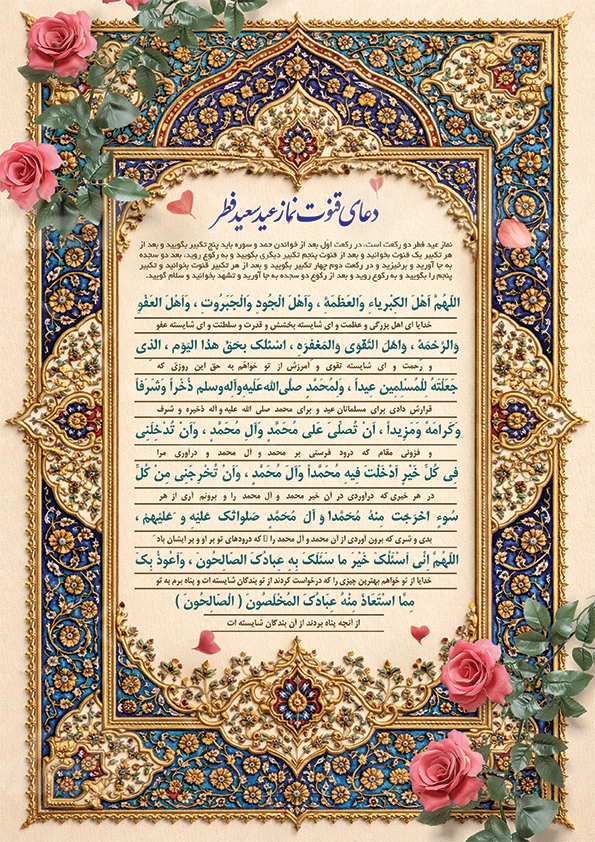 دعای قنوت نماز عید سعید فطر
نماز عید فطر دو رکعت است، در رکعت اول بعد از خواندن حمد و سوره باید پنج تکبیر بگویید و بعد از
هر تکبیر یک قنوت بخوانید و بعد از قنوت پنجم تکبیر دیگری بگویید و به رکوع روید، بعد دو سجده
به جا آورید و برخیزید و در رکعت دوم چهار تکبیر بگویید و بعد از هر تکبیر قنوت بخوانید و تکبیر
پنجم را بگویید و به رکوع روید و بعد از رکوع دو سجده به جا آورید و تشهد بخوانید و سلام گویید.
اللَّهُمَّ اَهْلَ الْكِبْرِیاءِ وَالْعَظَمَةِ ، وَاَهْلَ الْجُودِ وَالْجَبَرُوتِ ، وَاَهْلَ الْعَفْوِ
خدایا ای اهل بزرگی و عظمت و ای شایسته بخشش و قدرت و سلطنت و ای شایسته عفو
وَالرَّحْمَةِ ، وَاَهْلَ التَّقْوى وَالْمَغْفِرَهِ ، اَسْئَلُكَ بِحَقِّ هذَا الْیَوْمِ ، الَّذى
و رحمت و ای شایسته تقوی و آمرزش از تو خواهم به حق این روزی که
جَعَلْتَهُ لِلْمُسْلِمینَ عیداً ، وَلِمُحَمَّدٍ صَلَّى‌الله‌عَلَیْهِ‌وَآلِهِ‌وسلم ذُخْراً وَشَرَفاً
قرارش دادی برای مسلمانان عید و برای محمد صلی الله علیه و آله ذخیره و شرف
وَكَرامَةً وَمَزیداً ، اَنْ تُصَلِّىَ عَلى مُحَمَّدٍ وَآلِ مُحَمَّدٍ ، وَاَنْ تُدْخِلَنى
و فزونی مقام که درود فرستی بر محمد و آل محمد و درآوری مرا
فى كُلِّ خَیْرٍ اَدْخَلْتَ فیهِ مُحَمَّداً وَآلَ مُحَمَّدٍ ، وَاَنْ تُخْرِجَنى مِنْ كُلِّ
در هر خیری که درآوردی در آن خیر محمد و آل محمد را و برونم آری از هر
سُوءٍ اَخْرَجْتَ مِنْهُ مُحَمَّدا وَ آلَ مُحَمَّدٍ صَلَواتُكَ عَلَیْهِ وَ عَلَیْهِمْ ،
بدی و شری که برون آوردی از آن محمد و آل محمد را که درودهای تو بر او و بر ایشان باد
اَللَّهُمَّ اِنّى اَسْئَلُكَ خَیْرَ ما سَئَلَكَ بِهِ عِبادُكَ الصّالِحُونَ ، وَاَعُوذُ بِكَ
خدایا از تو خواهم بهترین چیزی را که درخواست کردند از تو بندگان شایسته ات و پناه برم به تو
مِمَّا اسْتَعاذَ مِنْهُ عِبادُكَ الْمُخْلَصُونَ ( الْصالِحُونَ )
از آنچه پناه بردند از آن بندگان شایسته ات